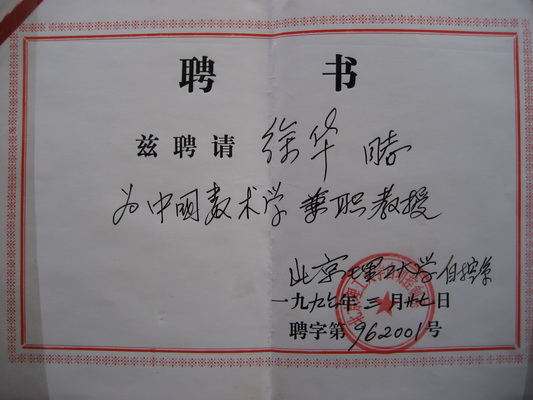 聘书
兹聘请 徐华 同志
为中國数术学兼职教授
北京理工大学自控系
一九九七年三月廿七日
聘字第962001号